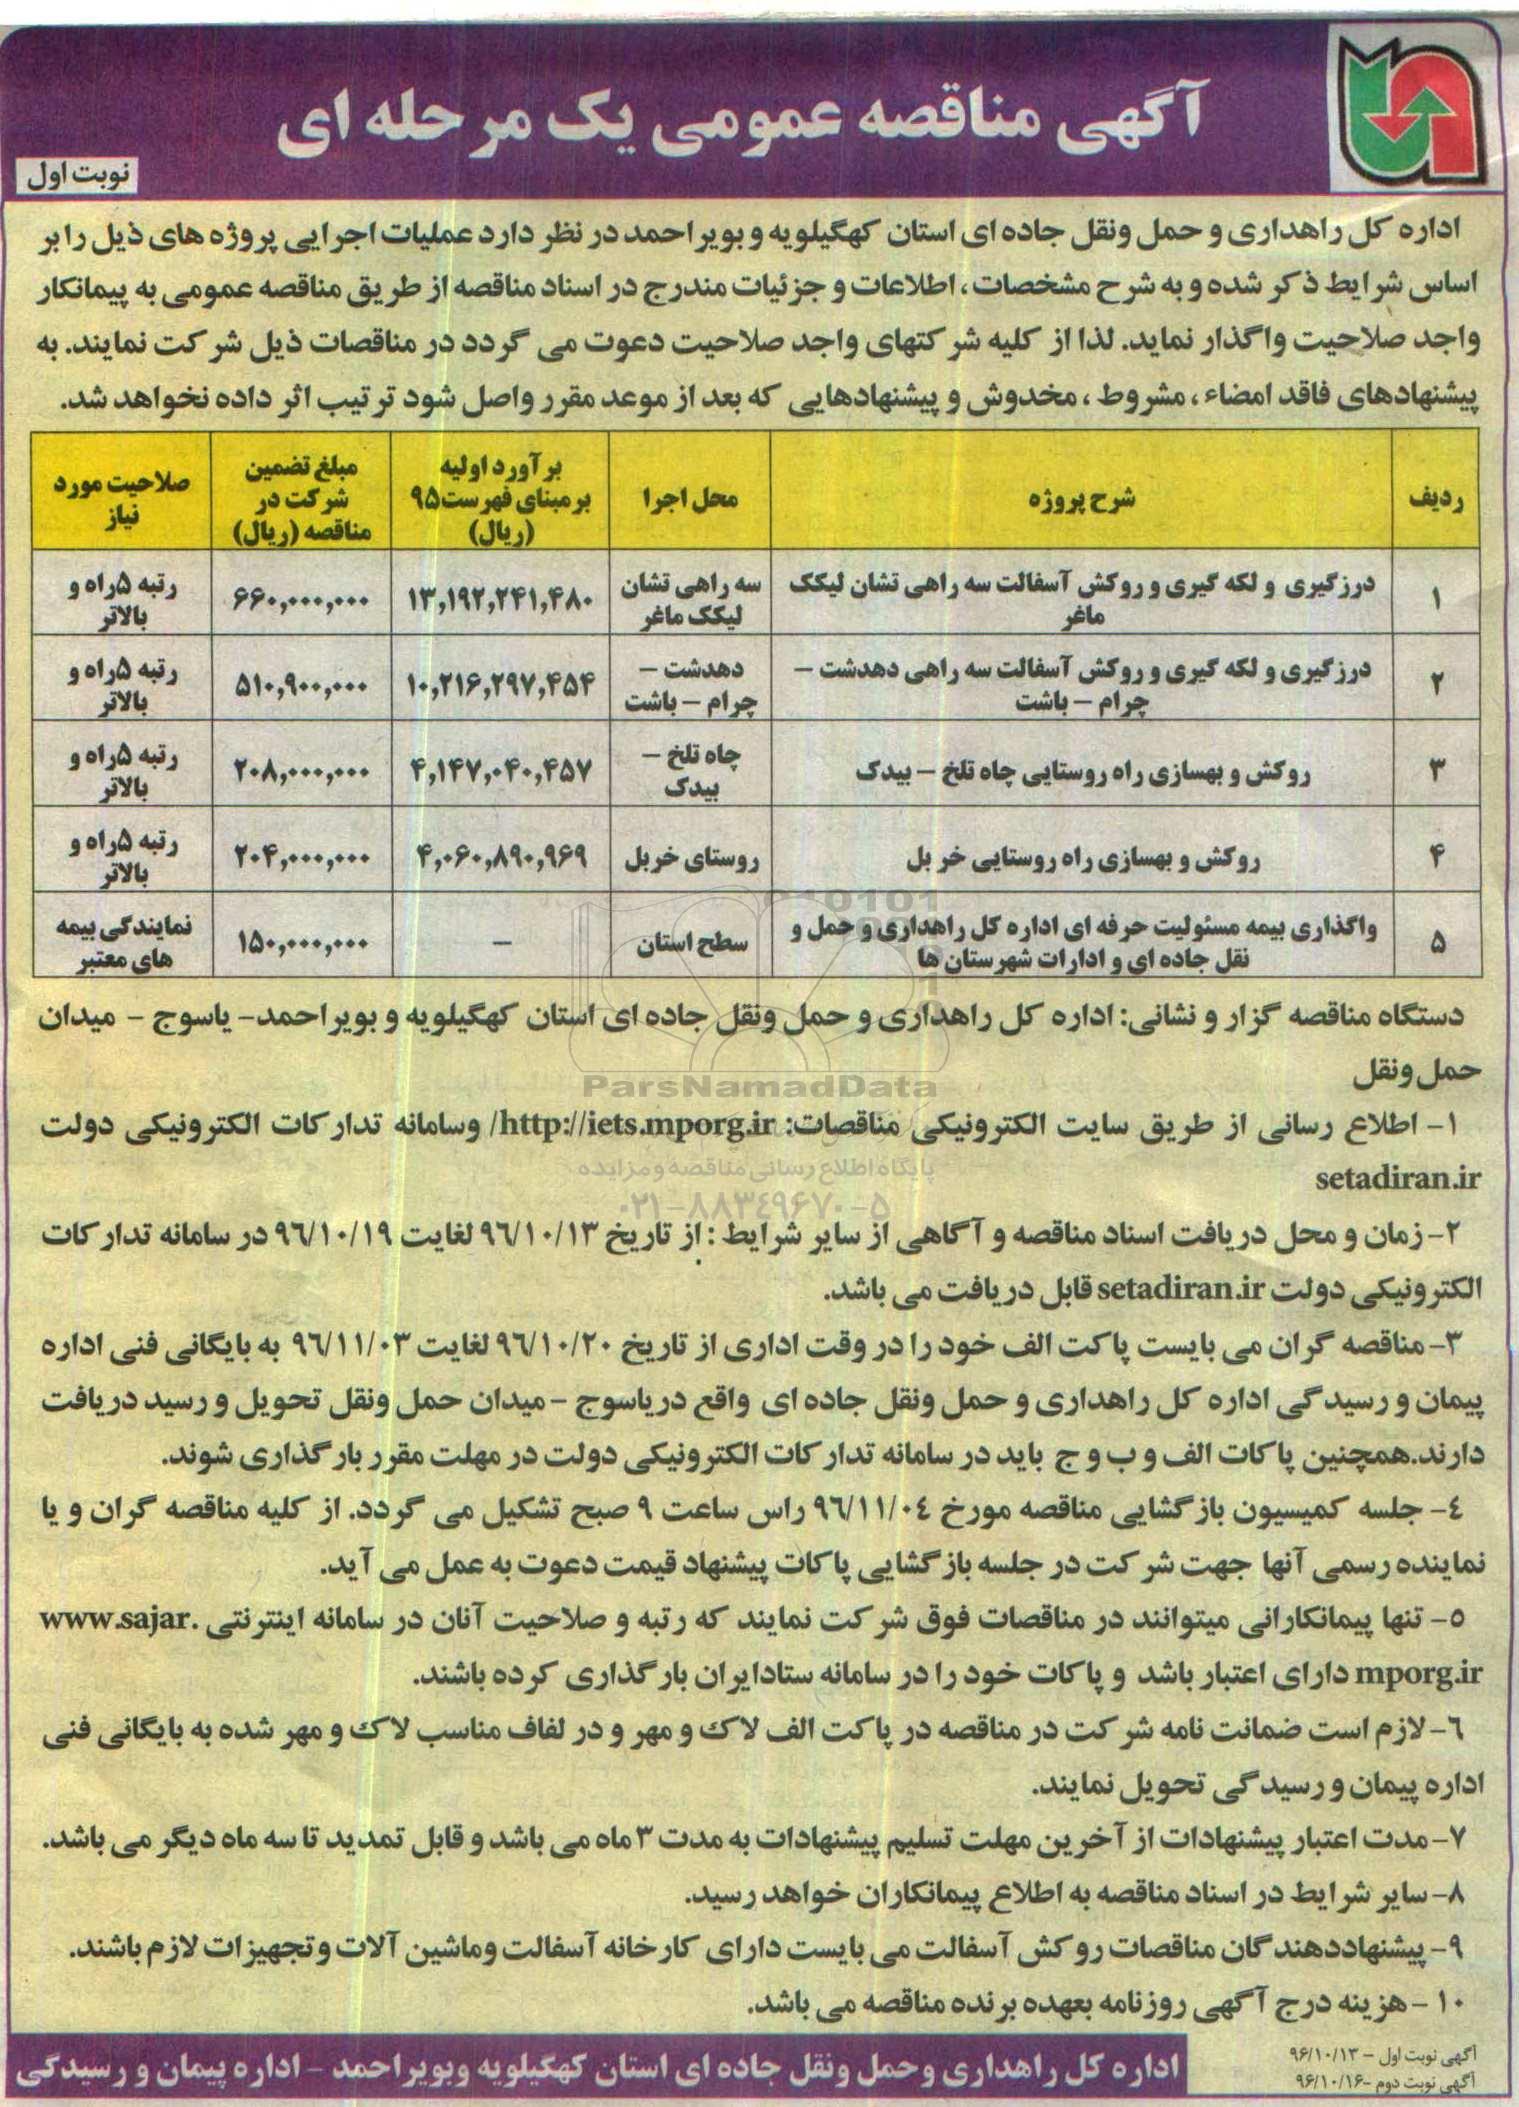 آگهی مناقصه عمومی یک مرحله ای
نوبت اول
اداره کل راهداری و حمل ونقل جاده ای استان کهگیلویه و بویراحمد در نظر دارد عملیات اجرایی پروژه های ذیل را بر
اساس شرایط ذکر شده و به شرح مشخصات، اطلاعات و جزئیات مندرج در اسناد مناقصه از طریق مناقصه عمومی به پیمانکار
واجد صلاحیت واگذار نماید. لذا از کلیه شرکتهای واجد صلاحیت دعوت می گردد در مناقصات ذیل شرکت نمایند. به
پیشنهادهای فاقد امضاء، مشروط، مخدوش و پیشنهادهایی که بعد از موعد مقرر واصل شود ترتیب اثر داده نخواهد شد.
ردیف | شرح پروژه | محل اجرا | برآورد اولیه برمبنای فهرست ۹۵ (ریال) | مبلغ تضمین شرکت در مناقصه (ریال) | صلاحیت مورد نیاز
۱ | درزگیری و لکه گیری و روکش آسفالت سه راهی تشان لیکک ماغر | سه راهی تشان لیکک ماغر | ۱۳,۱۹۲,۲۴۱,۴۸۰ | ۶۶۰,۰۰۰,۰۰۰ | رتبه ۵راه و بالاتر
۲ | درزگیری و لکه گیری و روکش آسفالت سه راهی دهدشت – چرام – باشت | دهدشت – چرام – باشت | ۱۰,۲۱۶,۲۹۷,۴۵۴ | ۵۱۰,۹۰۰,۰۰۰ | رتبه ۵راه و بالاتر
۳ | روکش و بهسازی راه روستایی چاه تلخ – بیدک | چاه تلخ – بیدک | ۴,۱۴۷,۰۴۰,۴۵۷ | ۲۰۸,۰۰۰,۰۰۰ | رتبه ۵راه و بالاتر
۴ | روکش و بهسازی راه روستایی خر بل | روستای خربل | ۴,۰۶۰,۸۹۰,۹۶۹ | ۲۰۴,۰۰۰,۰۰۰ | رتبه ۵راه و بالاتر
۵ | واگذاری بیمه مسئولیت حرفه ای اداره کل راهداری و حمل و نقل جاده ای و ادارات شهرستان ها | سطح استان | – | ۱۵۰,۰۰۰,۰۰۰ | نمایندگی بیمه های معتبر
دستگاه مناقصه گزار و نشانی: اداره کل راهداری و حمل ونقل جاده ای استان کهگیلویه و بویراحمد- یاسوج - میدان
حمل ونقل
۱- اطلاع رسانی از طریق سایت الکترونیکی مناقصات: http://iets.mporg.ir/ وسامانه تدارکات الکترونیکی دولت
setadiran.ir
۲- زمان و محل دریافت اسناد مناقصه و آگاهی از سایر شرایط : از تاریخ ۹۶/۱۰/۱۳ لغایت ۹۶/۱۰/۱۹ در سامانه تدارکات
الکترونیکی دولت setadiran.ir قابل دریافت می باشد.
۳- مناقصه گران می بایست پاکت الف خود را در وقت اداری از تاریخ ۹۶/۱۰/۲۰ لغایت ۹۶/۱۱/۰۳ به بایگانی فنی اداره
پیمان و رسیدگی اداره کل راهداری و حمل ونقل جاده ای واقع در یاسوج - میدان حمل ونقل تحویل و رسید دریافت
دارند. همچنین پاکات الف و ب و ج باید در سامانه تدارکات الکترونیکی دولت در مهلت مقرر بارگذاری شوند.
٤- جلسه کمیسیون بازگشایی مناقصه مورخ ۹۶/۱۱/۰٤ راس ساعت ۹ صبح تشکیل می گردد. از کلیه مناقصه گران و یا
نماینده رسمی آنها جهت شرکت در جلسه بازگشایی پاکات پیشنهاد قیمت دعوت به عمل می آید.
۵- تنها پیمانکارانی میتوانند در مناقصات فوق شرکت نمایند که رتبه و صلاحیت آنان در سامانه اینترنتی www.sajar.
mporg.ir دارای اعتبار باشد و پاکات خود را در سامانه ستادایران بارگذاری کرده باشند.
۶- لازم است ضمانت نامه شرکت در مناقصه در پاکت الف لاک و مهر و در لفاف مناسب لاک و مهر شده به بایگانی فنی
اداره پیمان و رسیدگی تحویل نمایند.
۷- مدت اعتبار پیشنهادات از آخرین مهلت تسلیم پیشنهادات به مدت ۳ ماه می باشد و قابل تمدید تا سه ماه دیگر می باشد.
۸- سایر شرایط در اسناد مناقصه به اطلاع پیمانکاران خواهد رسید.
۹- پیشنهاددهندگان مناقصات روکش آسفالت می بایست دارای کارخانه آسفالت وماشین آلات وتجهیزات لازم باشند.
۱۰- هزینه درج آگهی روزنامه بعهده برنده مناقصه می باشد.
آگهی نوبت اول – ۹۶/۱۰/۱۳
آگهی نوبت دوم -۹۶/۱۰/۱۶
اداره کل راهداری وحمل ونقل جاده ای استان کهگیلویه وبویراحمد - اداره پیمان و رسیدگی
ParsNamadData
پایگاه اطلاع رسانی مناقصه و مزایده
۰۲۱-۸۸۳۴۹۶۷۰-۵